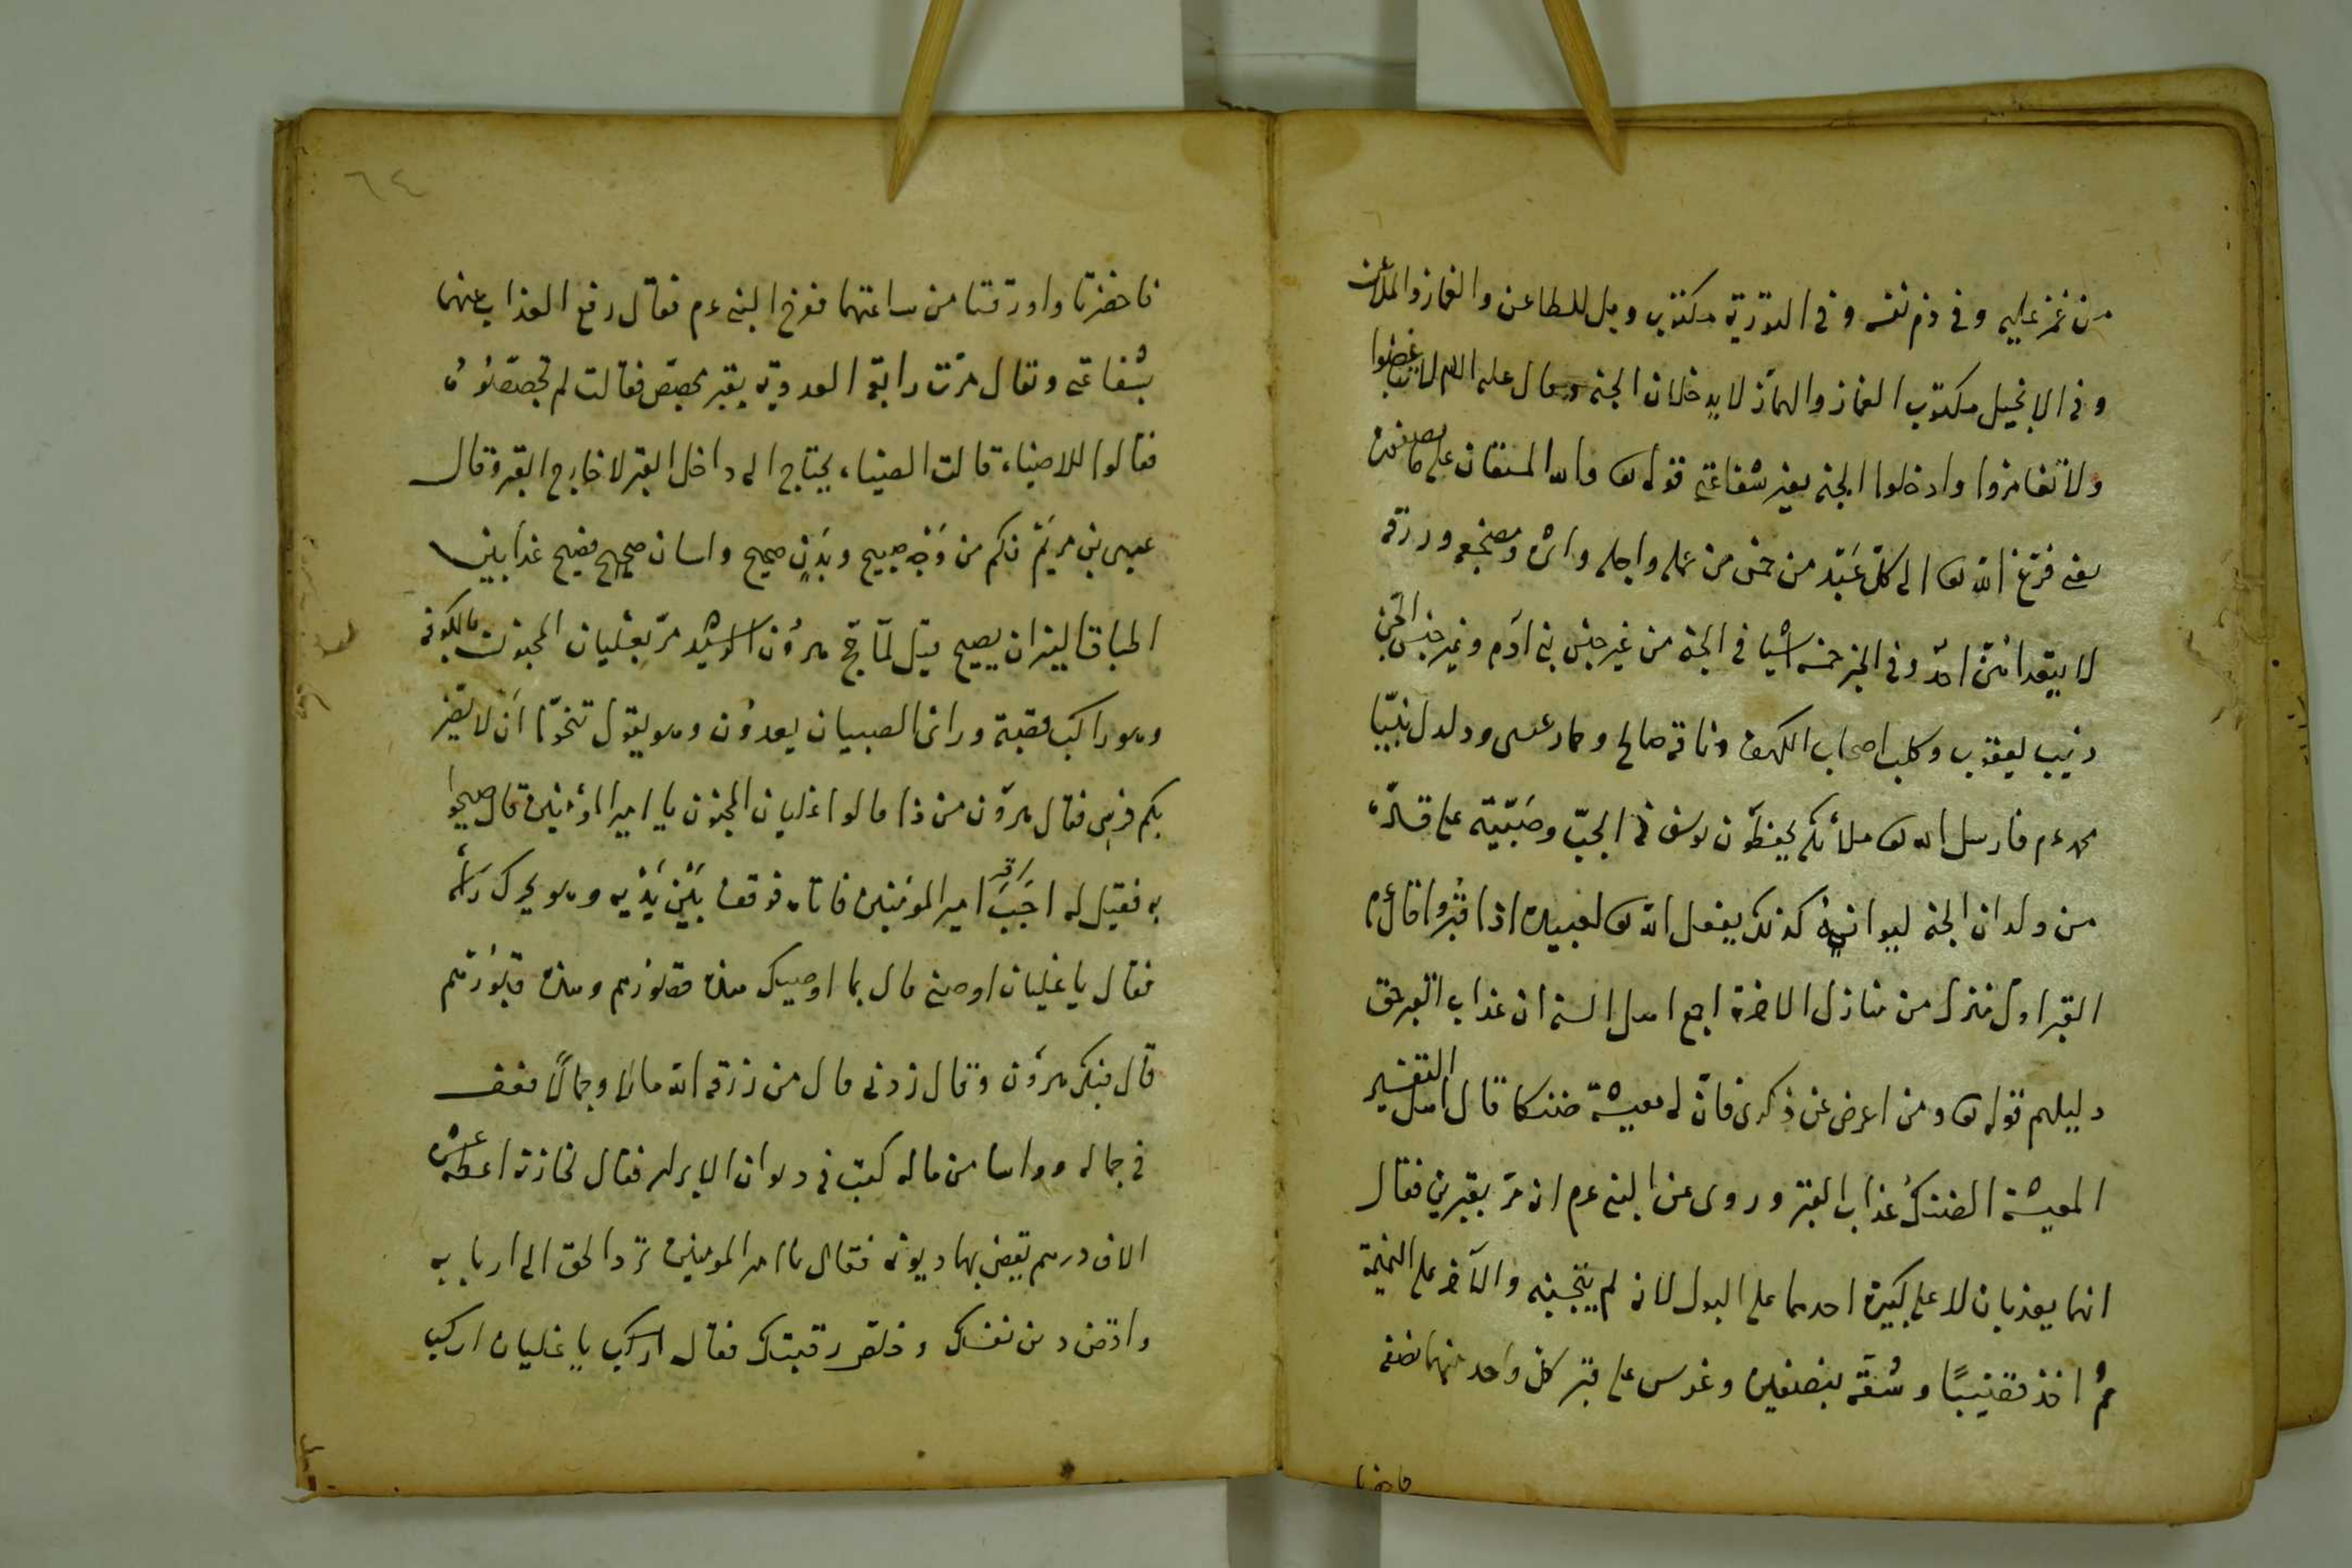 من غمز عليه وفى ذم نفسه وفى التورية مكتوب ويل للطاعن والغماز والملاعن
وفى الانجيل مكتوب الغماز والهماز لا يدخلان الجنة وقال عليه السلام لا تباغضوا
ولا تغامزوا وادخلوا الجنة بغير شفاعتى قوله تعا والله المستعان على ما تصفون
يعنى فرغ الله تعا الى كل عبد من خمس من عمله واجله واثره ومضجعه ورزقه
لا يتعداهن احد وفى الخبر خمسة اشيا فى الجنة من غير جنس بنى ادم وغير جنس الجن
ذئب يعقوب وكلب اصحاب الكهف وناقة صالح وحمار عيسى ودلدل نبينا
محمد عم فارسل الله تعا ملائكة يحفظون يوسف فى الجب وصبية على
من ولدان الجنة ليوانسه كذلك يفعل الله تعا لعبيده اذا قبروا قال عم
القبر اول منزل من منازل الاخرة اجمع اهل السنة ان عذاب القبر حق
دليلهم قوله تعا ومن اعرض عن ذكرى فان له معيشة ضنكا قال اهل التفسير
المعيشة الضنك عذاب القبر وروى عن النبى عم انه مر بقبرين فقال
انهما يعذبان لا على كبيرة احدهما على البول لانه لم يتجنبه والآخر على النميمة
ثم اخذ قضيبا وشقه بنصفين وغرس على قبر كل واحد منهما نصفه
فاخضرتا
٦٤
فاخضرتا واورقتا من ساعتهما ففرح النبى عم فقال رفع العذاب عنهما
بشفاعتى ويقال مرت رابعة العدوية بقبر يجصص فقالت لم تجصصونه
فقالوا للاضياء قالت الضياء يحتاج الى داخل القبر لا خارج القبر وقال
عيسى بن مريم فكم من وجه صبيح وبدن صحيح ولسان فصيح غدا بين
اطباق النيران يصيح قيل لما حج هرون الرشيد مر بغليان المجنون بالكوفة
وهو راكب قصبة وراى الصبيان يعدون وهو يقول تنحوا ان لا يضر
بكم فرسى فقال هرون من ذا قالوا غليان المجنون يا امير المؤمنين قال صيحوا
به فقيل له اجب امير المؤمنين فاتاه فوقف بين يديه وهو يحرك راسه
فقال يا غليان اوصنى قال بما اوصيك هذه قصورهم وهذه قبورهم
قال فبكى هرون وقال زدنى قال من رزقه الله مالا وجمالا فعف
فى جماله وواسا من ماله كتب فى ديوان الابرار فقال لخازنه اعطه عشرة
الاف درهم يقضى بها ديونه فقال يا امير المومنين ترد الحق الى اربابه
واقض دين نفسك وخلص رقبتك فقال اركب يا غليان اركب